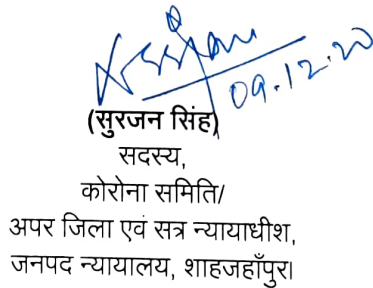 09.12.20
(सुरजन सिंह)
सदस्य,
कोरोना समिति/
अपर जिला एवं सत्र न्यायाधीश,
जनपद न्यायालय, शाहजहाँपुर।